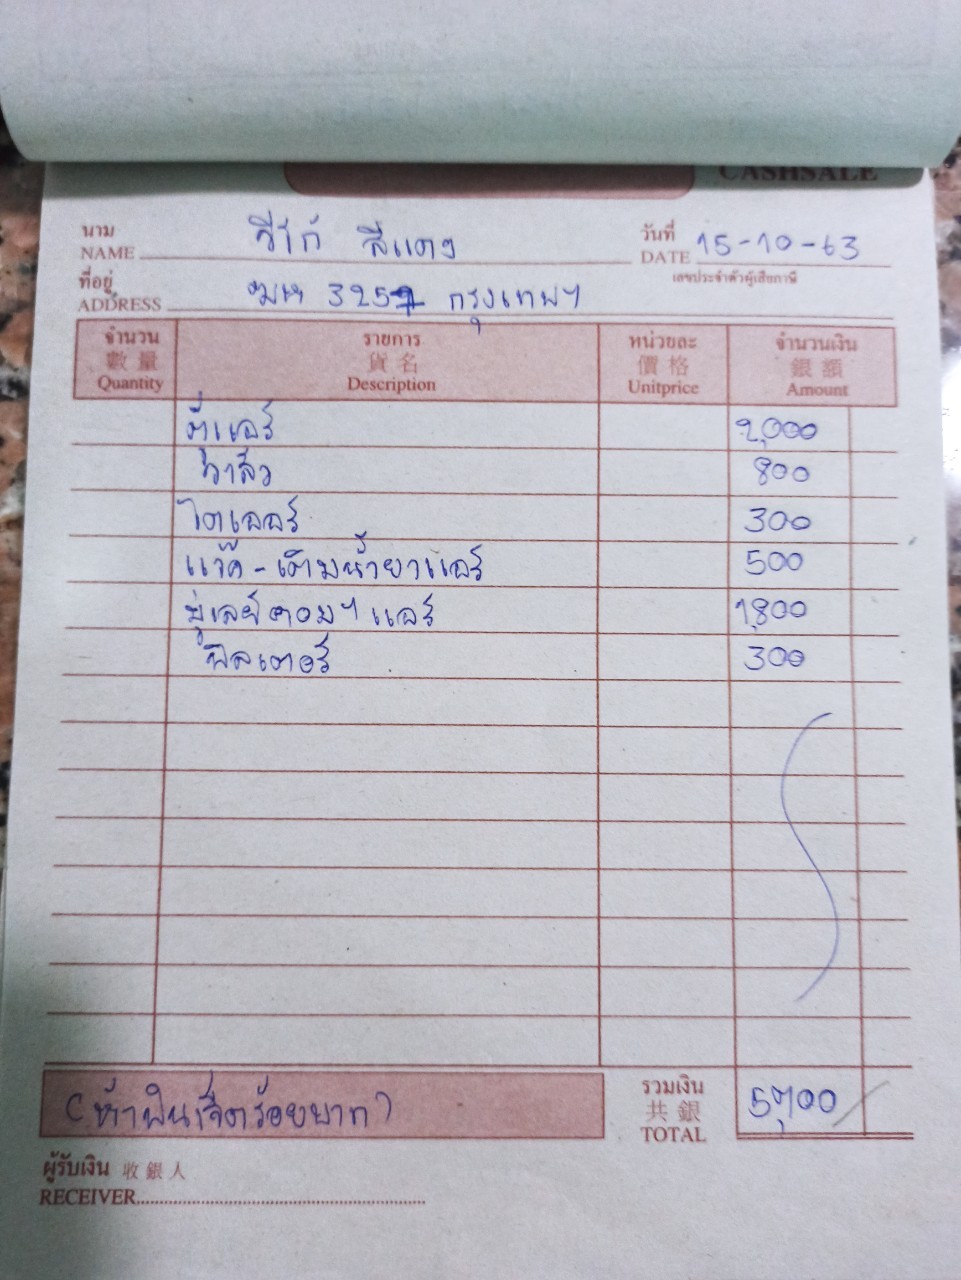 CASHSALE
นาม วีโก้ สีแดง วันที่ 15-10-63
NAME DATE
เลขประจำตัวผู้เสียภาษี
ที่อยู่ ฆห 3257 กรุงเทพฯ
ADDRESS
จำนวน รายการ หน่วยละ จำนวนเงิน
數量 貨名 價格 銀額
Quantity Description Unitprice Amount
ตู้แอร์ 2,000
วาล์ว 800
ไดเออร์ 300
แว๊ค - เติมน้ำยาแอร์ 500
มู่เลย์คอมฯ แอร์ 1,800
ฟิลเตอร์ 300
(ห้าพันเจ็ดร้อยบาท) รวมเงิน 5,700
共銀
TOTAL
ผู้รับเงิน 收銀人
RECEIVER